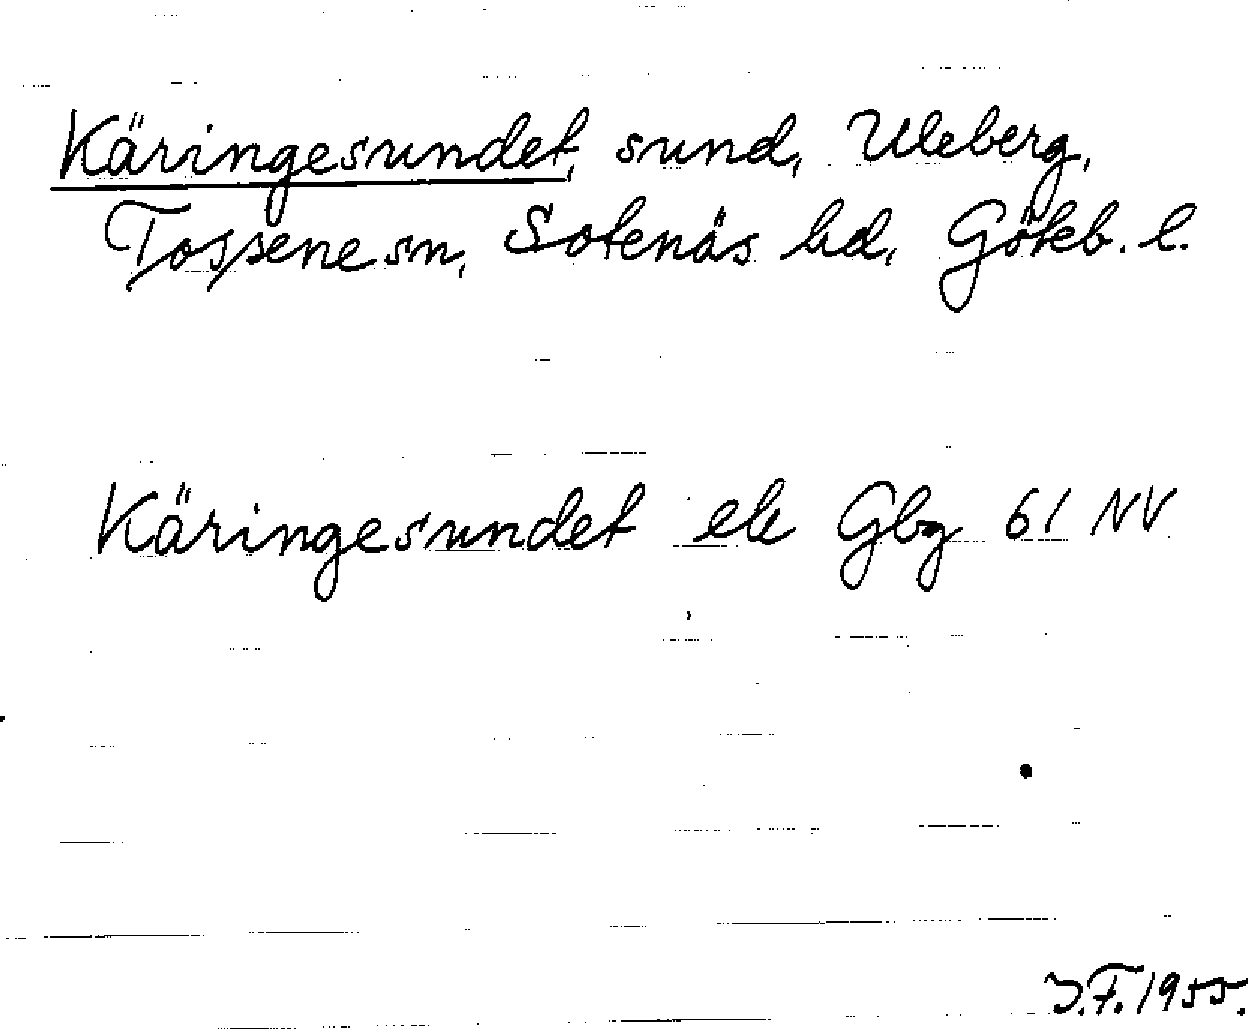 Käringesundet, sund, Uleberg,
Tossene sn, Sotenäs hd, Göteb. l.
Käringesundet ek Gbg 61 NV
J.F. 1955.